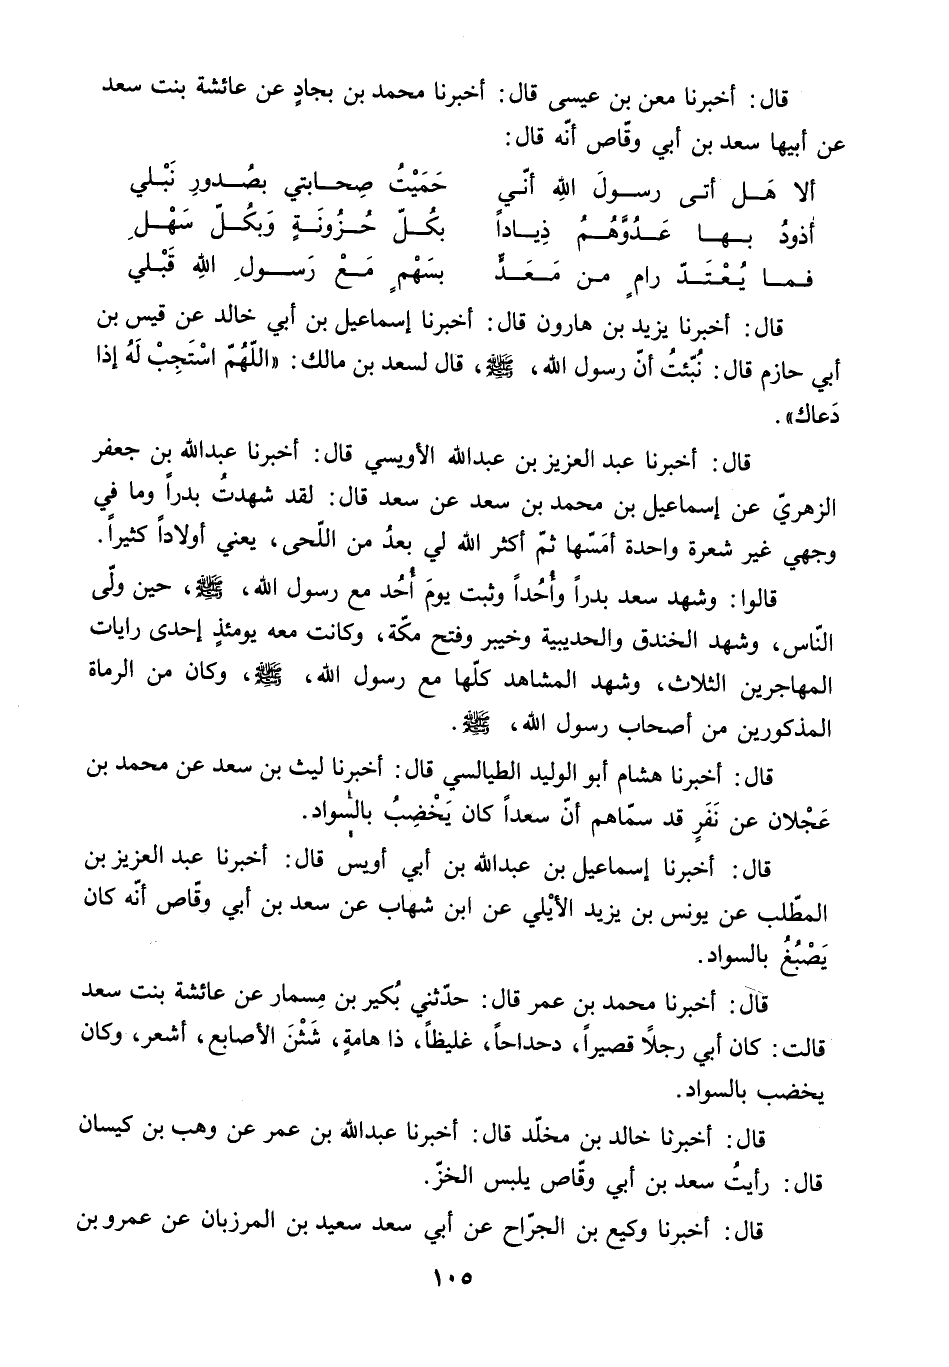 قال: أخبرنا معن بن عيسى قال: أخبرنا محمد بن بجادٍ عن عائشة بنت سعد
عن أبيها سعد بن أبي وقّاص أنّه قال:
ألا هَـل أتـى رسـولَ اللهِ أنّـي حَمَيْتُ صِحـابتي بصُـدورِ نَبْلي
أذودُ بـهـا عَـدُوَّهُـم ذِيـاداً بكُـلّ حُـزُونَـةٍ وَبكُـلّ سَهْـلِ
فـمـا يُـعْـتَـدّ رامٍ مـن مَـعَـدٍّ بسَهْمٍ مَـعْ رَسـولِ اللهِ قَبْلي
قال: أخبرنا يزيد بن هارون قال: أخبرنا إسماعيل بن أبي خالد عن قيس بن
أبي حازم قال: نُبّئتُ أنّ رسول الله، ﷺ، قال لسعد بن مالك: «اللّهُمّ اسْتَجِبْ لَهُ إذا
دَعاك».
قال: أخبرنا عبد العزيز بن عبدالله الأويسي قال: أخبرنا عبدالله بن جعفر
الزهريّ عن إسماعيل بن محمد بن سعد عن سعد قال: لقد شهدتُ بدراً وما في
وجهي غير شعرة واحدة أمَسّها ثمّ أكثر الله لي بعدُ من اللّحى، يعني أولاداً كثيراً.
قالوا: وشهد سعد بدراً وأُحُداً وثبت يومَ أُحُد مع رسول الله، ﷺ، حين ولّى
النّاس، وشهد الخندق والحديبية وخيبر وفتح مكّة، وكانت معه يومئذٍ إحدى رايات
المهاجرين الثلاث، وشهد المشاهد كلّها مع رسول الله، ﷺ، وكان من الرماة
المذكورين من أصحاب رسول الله، ﷺ.
قال: أخبرنا هشام أبو الوليد الطيالسي قال: أخبرنا ليث بن سعد عن محمد بن
عَجْلان عن نَفَرٍ قد سمّاهم أنّ سعداً كان يَخْضِبُ بالسواد.
قال: أخبرنا إسماعيل بن عبدالله بن أبي أويس قال: أخبرنا عبد العزيز بن
المطّلب عن يونس بن يزيد الأيْلي عن ابن شهاب عن سعد بن أبي وقّاص أنّه كان
يَصْبُغُ بالسواد.
قال: أخبرنا محمد بن عمر قال: حدّثني بُكير بن مِسمار عن عائشة بنت سعد
قالت: كان أبي رجلًا قصيراً، دحداحاً، غليظاً، ذا هامةٍ، شَثْنَ الأصابع، أشعر، وكان
يخضب بالسواد.
قال: أخبرنا خالد بن مخلّد قال: أخبرنا عبدالله بن عمر عن وهب بن كيسان
قال: رأيتُ سعد بن أبي وقّاص يلبس الخزّ.
قال: أخبرنا وكيع بن الجرّاح عن أبي سعد سعيد بن المرزبان عن عمرو بن
١٠٥